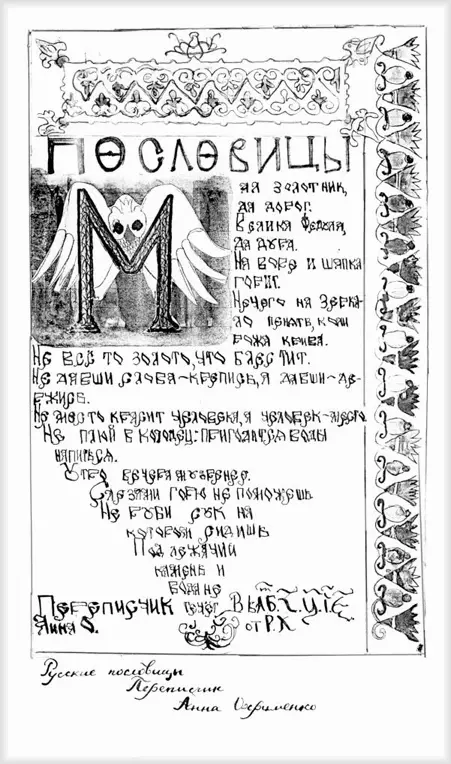 ПОСЛОВИЦЫ
Мал золотник,
да дорог.
Велика Федула,
да дура.
На воре и шапка
горит.
Нечего на зерка-
ло пенять, коли
рожа крива.
Не всё то золото, что блестит.
Не давши слова - крепись, а давши - де-
ржись.
Не место красит человека, а человек - место
Не плюй в колодец: пригодится воды
напиться.
Утро вечера мудренее.
Слезами горю не поможешь
Не руби сук на
котором сидишь
Под лежачий
камень и
вода не
Переписчик течёт.
Анна О. от Р.Х
Русские пословицы
Переписчик
Анна Охрименко